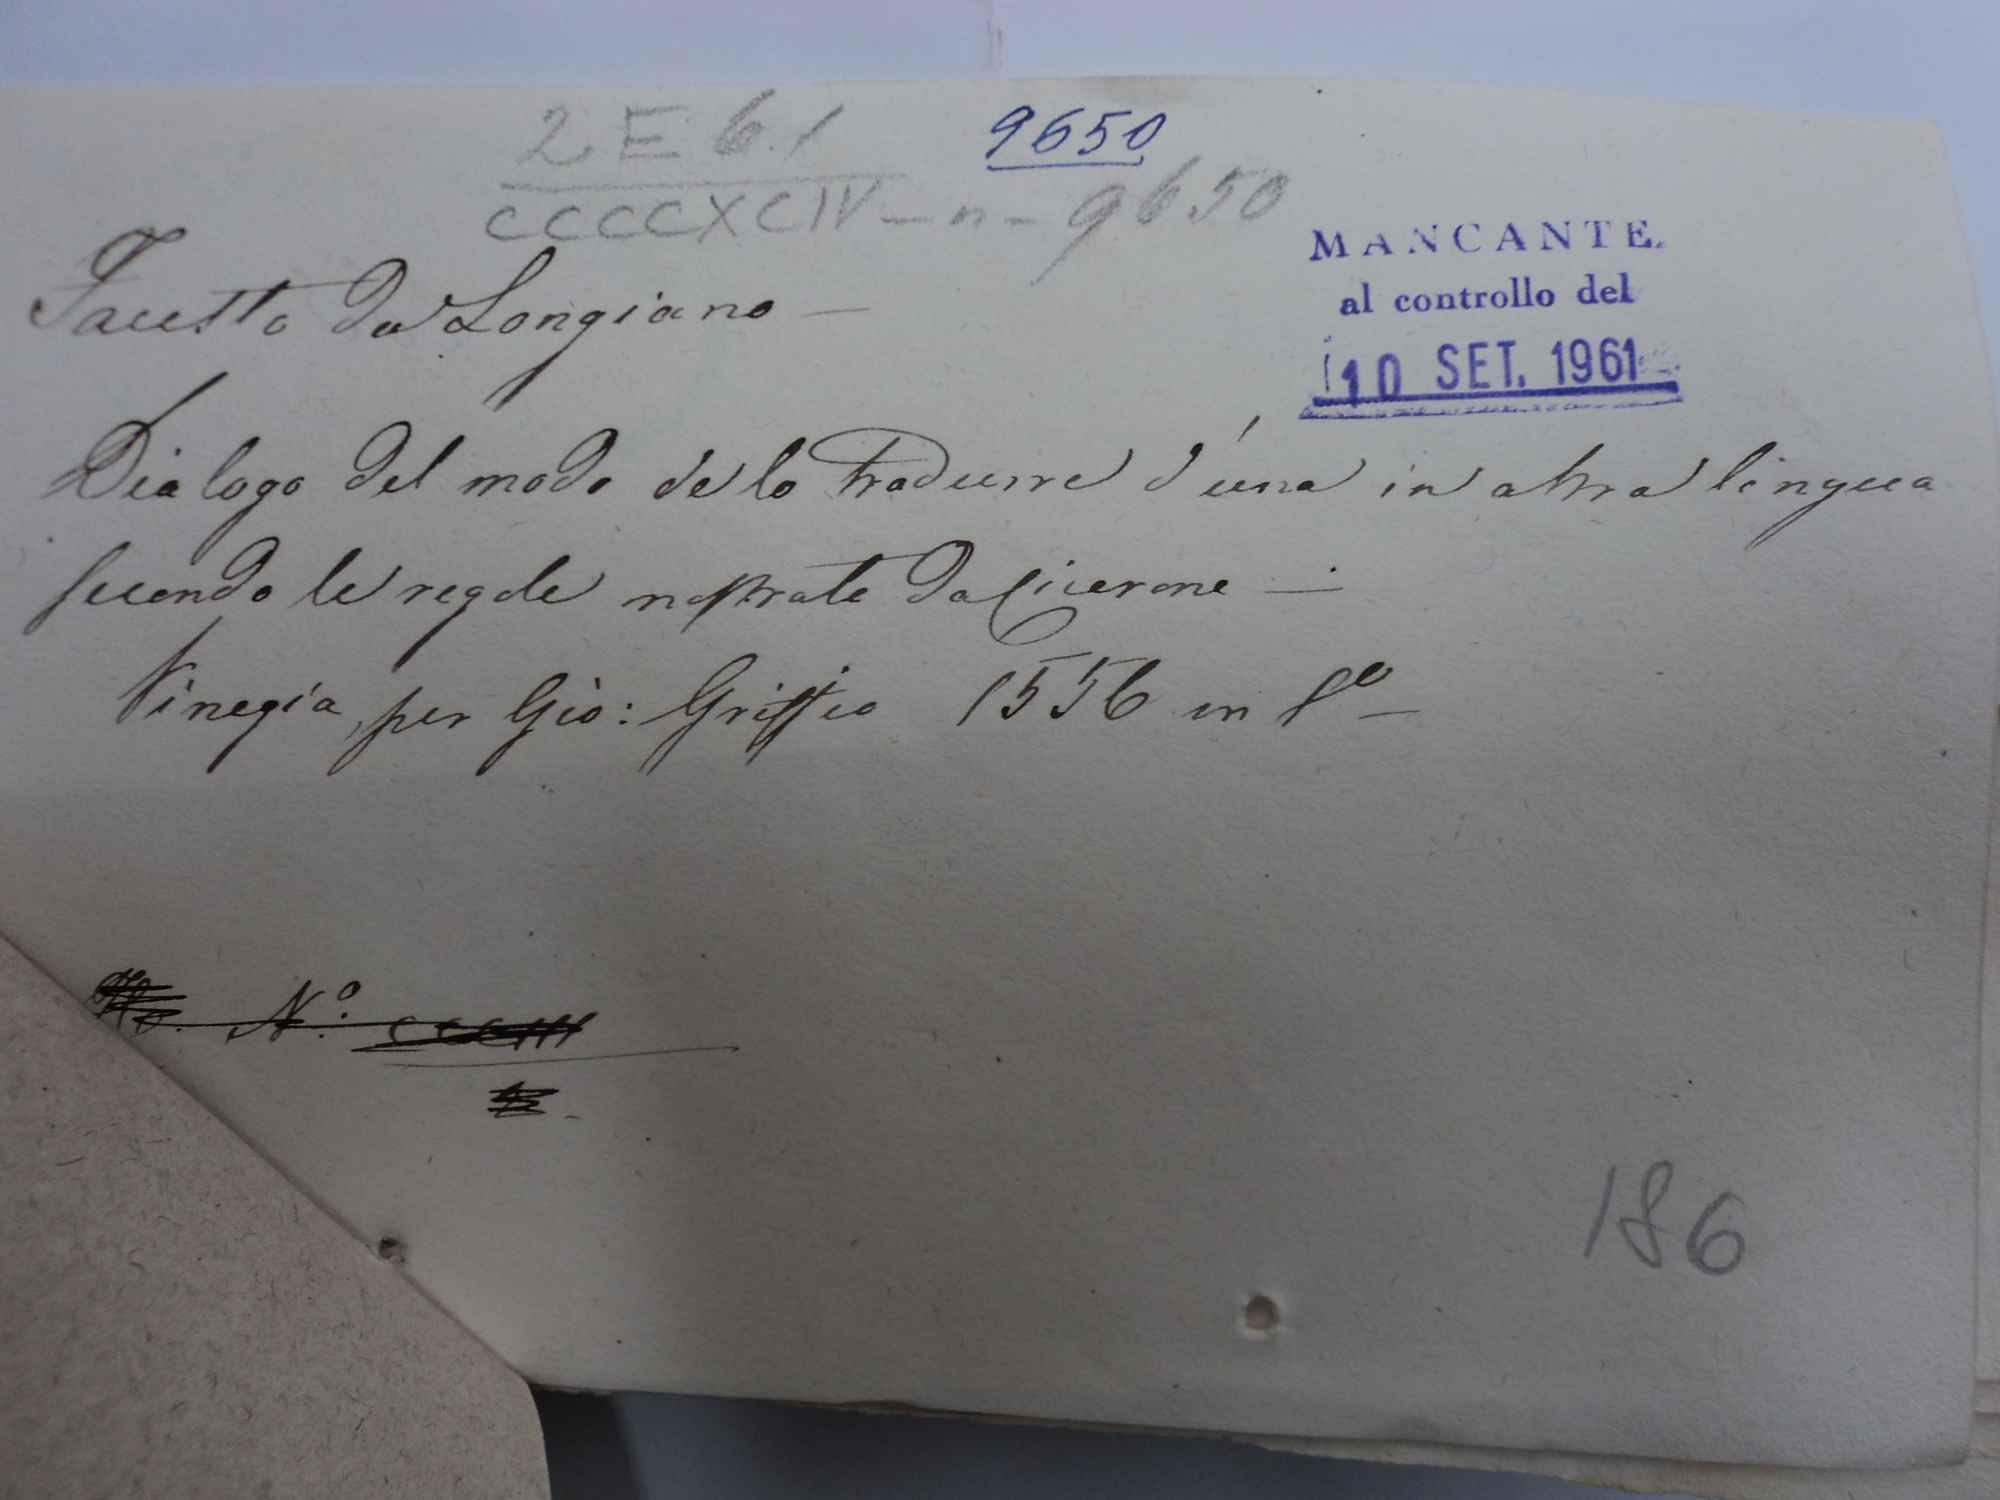 2 E 6.1
9650
CCCCXCIV - n - 9650
MANCANTE
al controllo del
10 SET. 1961
Fausto da Longiano —
Dialogo del modo de lo tradurre d'una in altra lingua
secondo le regole mostrate da Cicerone —
Vinegia, per Gio: Griffio 1556 in 8º —
Nº.
186